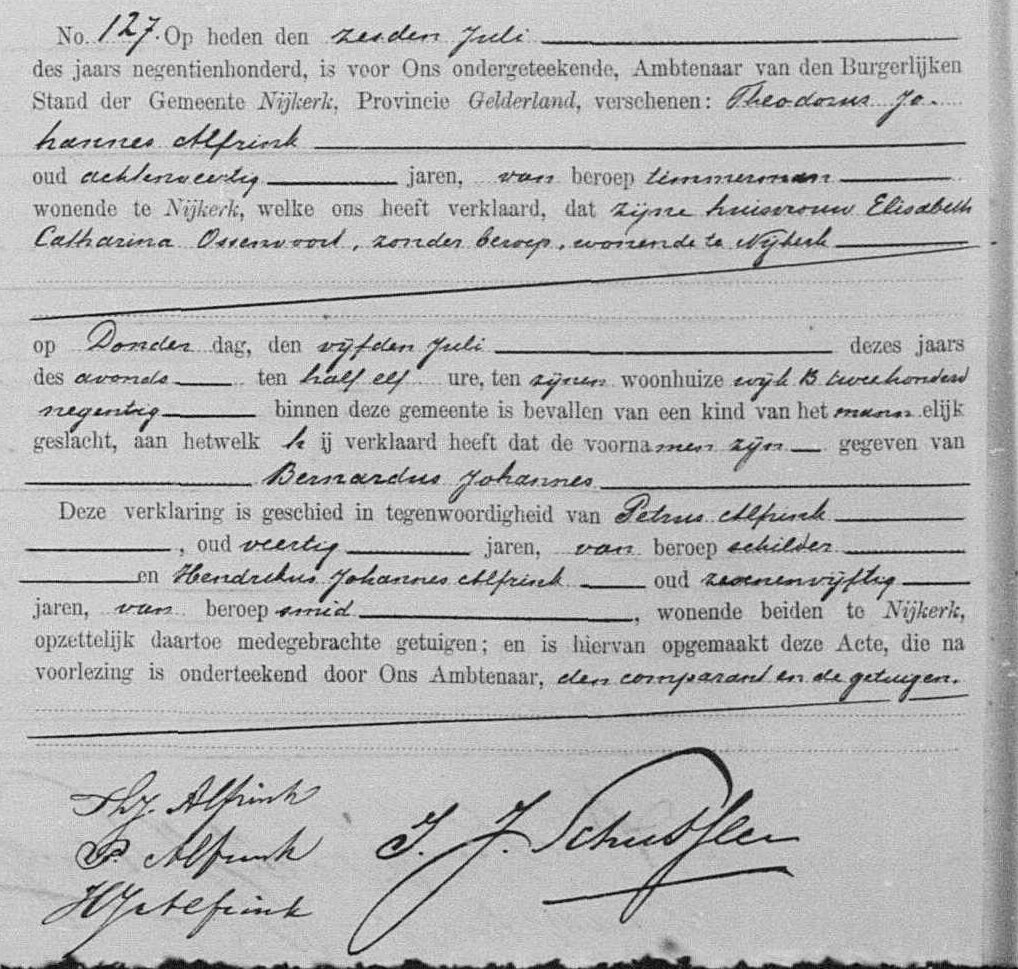 No. 127. Op heden den zesden Juli
des jaars negentienhonderd, is voor Ons ondergeteekende, Ambtenaar van den Burgerlijken
Stand der Gemeente Nijkerk, Provincie Gelderland, verschenen: Theodorus Jo-
hannes Alfrink
oud achtenveertig jaren, van beroep timmerman
wonende te Nijkerk, welke ons heeft verklaard, dat zijne huisvrouw Elisabeth
Catharina Ossenvoort, zonder beroep, wonende te Nijkerk
op Donder dag, den vijfden Juli dezes jaars
des avonds ten half elf ure, ten zijnen woonhuize wijk B tweehonderd
negentig binnen deze gemeente is bevallen van een kind van het mann elijk
geslacht, aan hetwelk h ij verklaard heeft dat de voornamen zijn gegeven van
Bernardus Johannes
Deze verklaring is geschied in tegenwoordigheid van Petrus Alfrink
, oud veertig jaren, van beroep schilder
en Hendrikus Johannes Alfrink oud zevenenvijftig
jaren, van beroep smid , wonende beiden te Nijkerk,
opzettelijk daartoe medegebrachte getuigen; en is hiervan opgemaakt deze Acte, die na
voorlezing is onderteekend door Ons Ambtenaar, den comparant en de getuigen.
Th. J. Alfrink
P. Alfrink
H J Alfrink
J. J. Schüssler